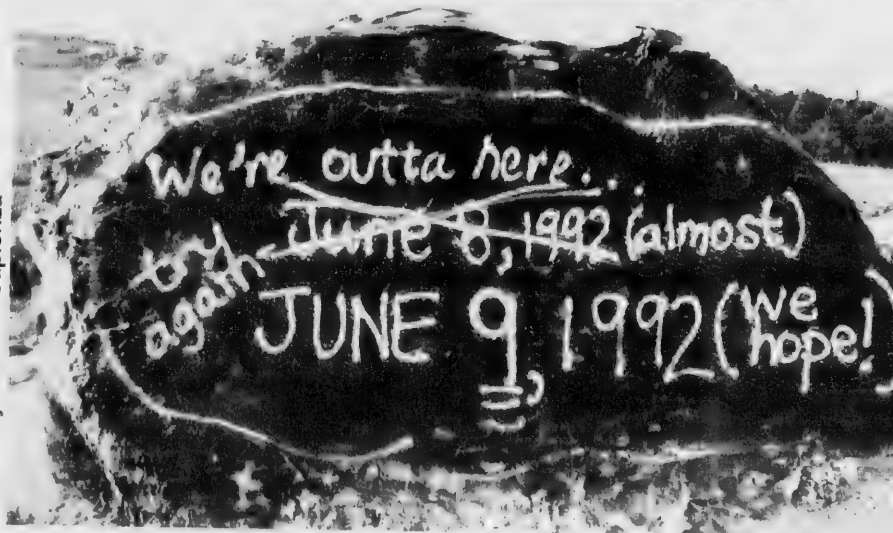 We're outta here...
June 8, 1992 (almost)
try
again
JUNE 9, 1992 (we
hope!)